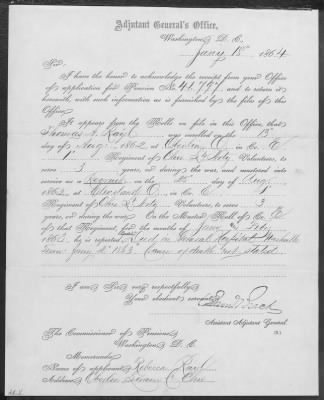 Adjutant General's Office,
Washington, D. C.
Jany 18th 1864
Sir:
I have the honor to acknowledge the receipt from your Office
of application for Pension No. 41.797, and to return it
herewith, with such information as is furnished by the files of this
Office.
It appears from the Rolls on file in this Office, that
Thomas A. was enrolled on the 13"
day of Aug. 1862 at Oberlin O. in Co. E
1" Regiment of Ohio Lt Arty Volunteers, to
serve 3 years, or during the war, and mustered into
service as a on the day of Aug.
1862, at Cleveland O. in Co. E 1"
Regiment of Ohio Lt Arty Volunteers, to serve 3
years, or during the war. On the Muster Roll of Co. E
of that Regiment, for the months of Jany & Feby
1863, he is reported Died in General Hospital Nashville
Tenn Jany 1863 Cause of death not stated
I am Sir, very respectfully,
Your obedient servant,
Assistant Adjutant General.
The Commissioner of Pensions
Washington D. C.
Memoranda
Name of applicant, Rebecca
Address, Oberlin Lorain Co Ohio